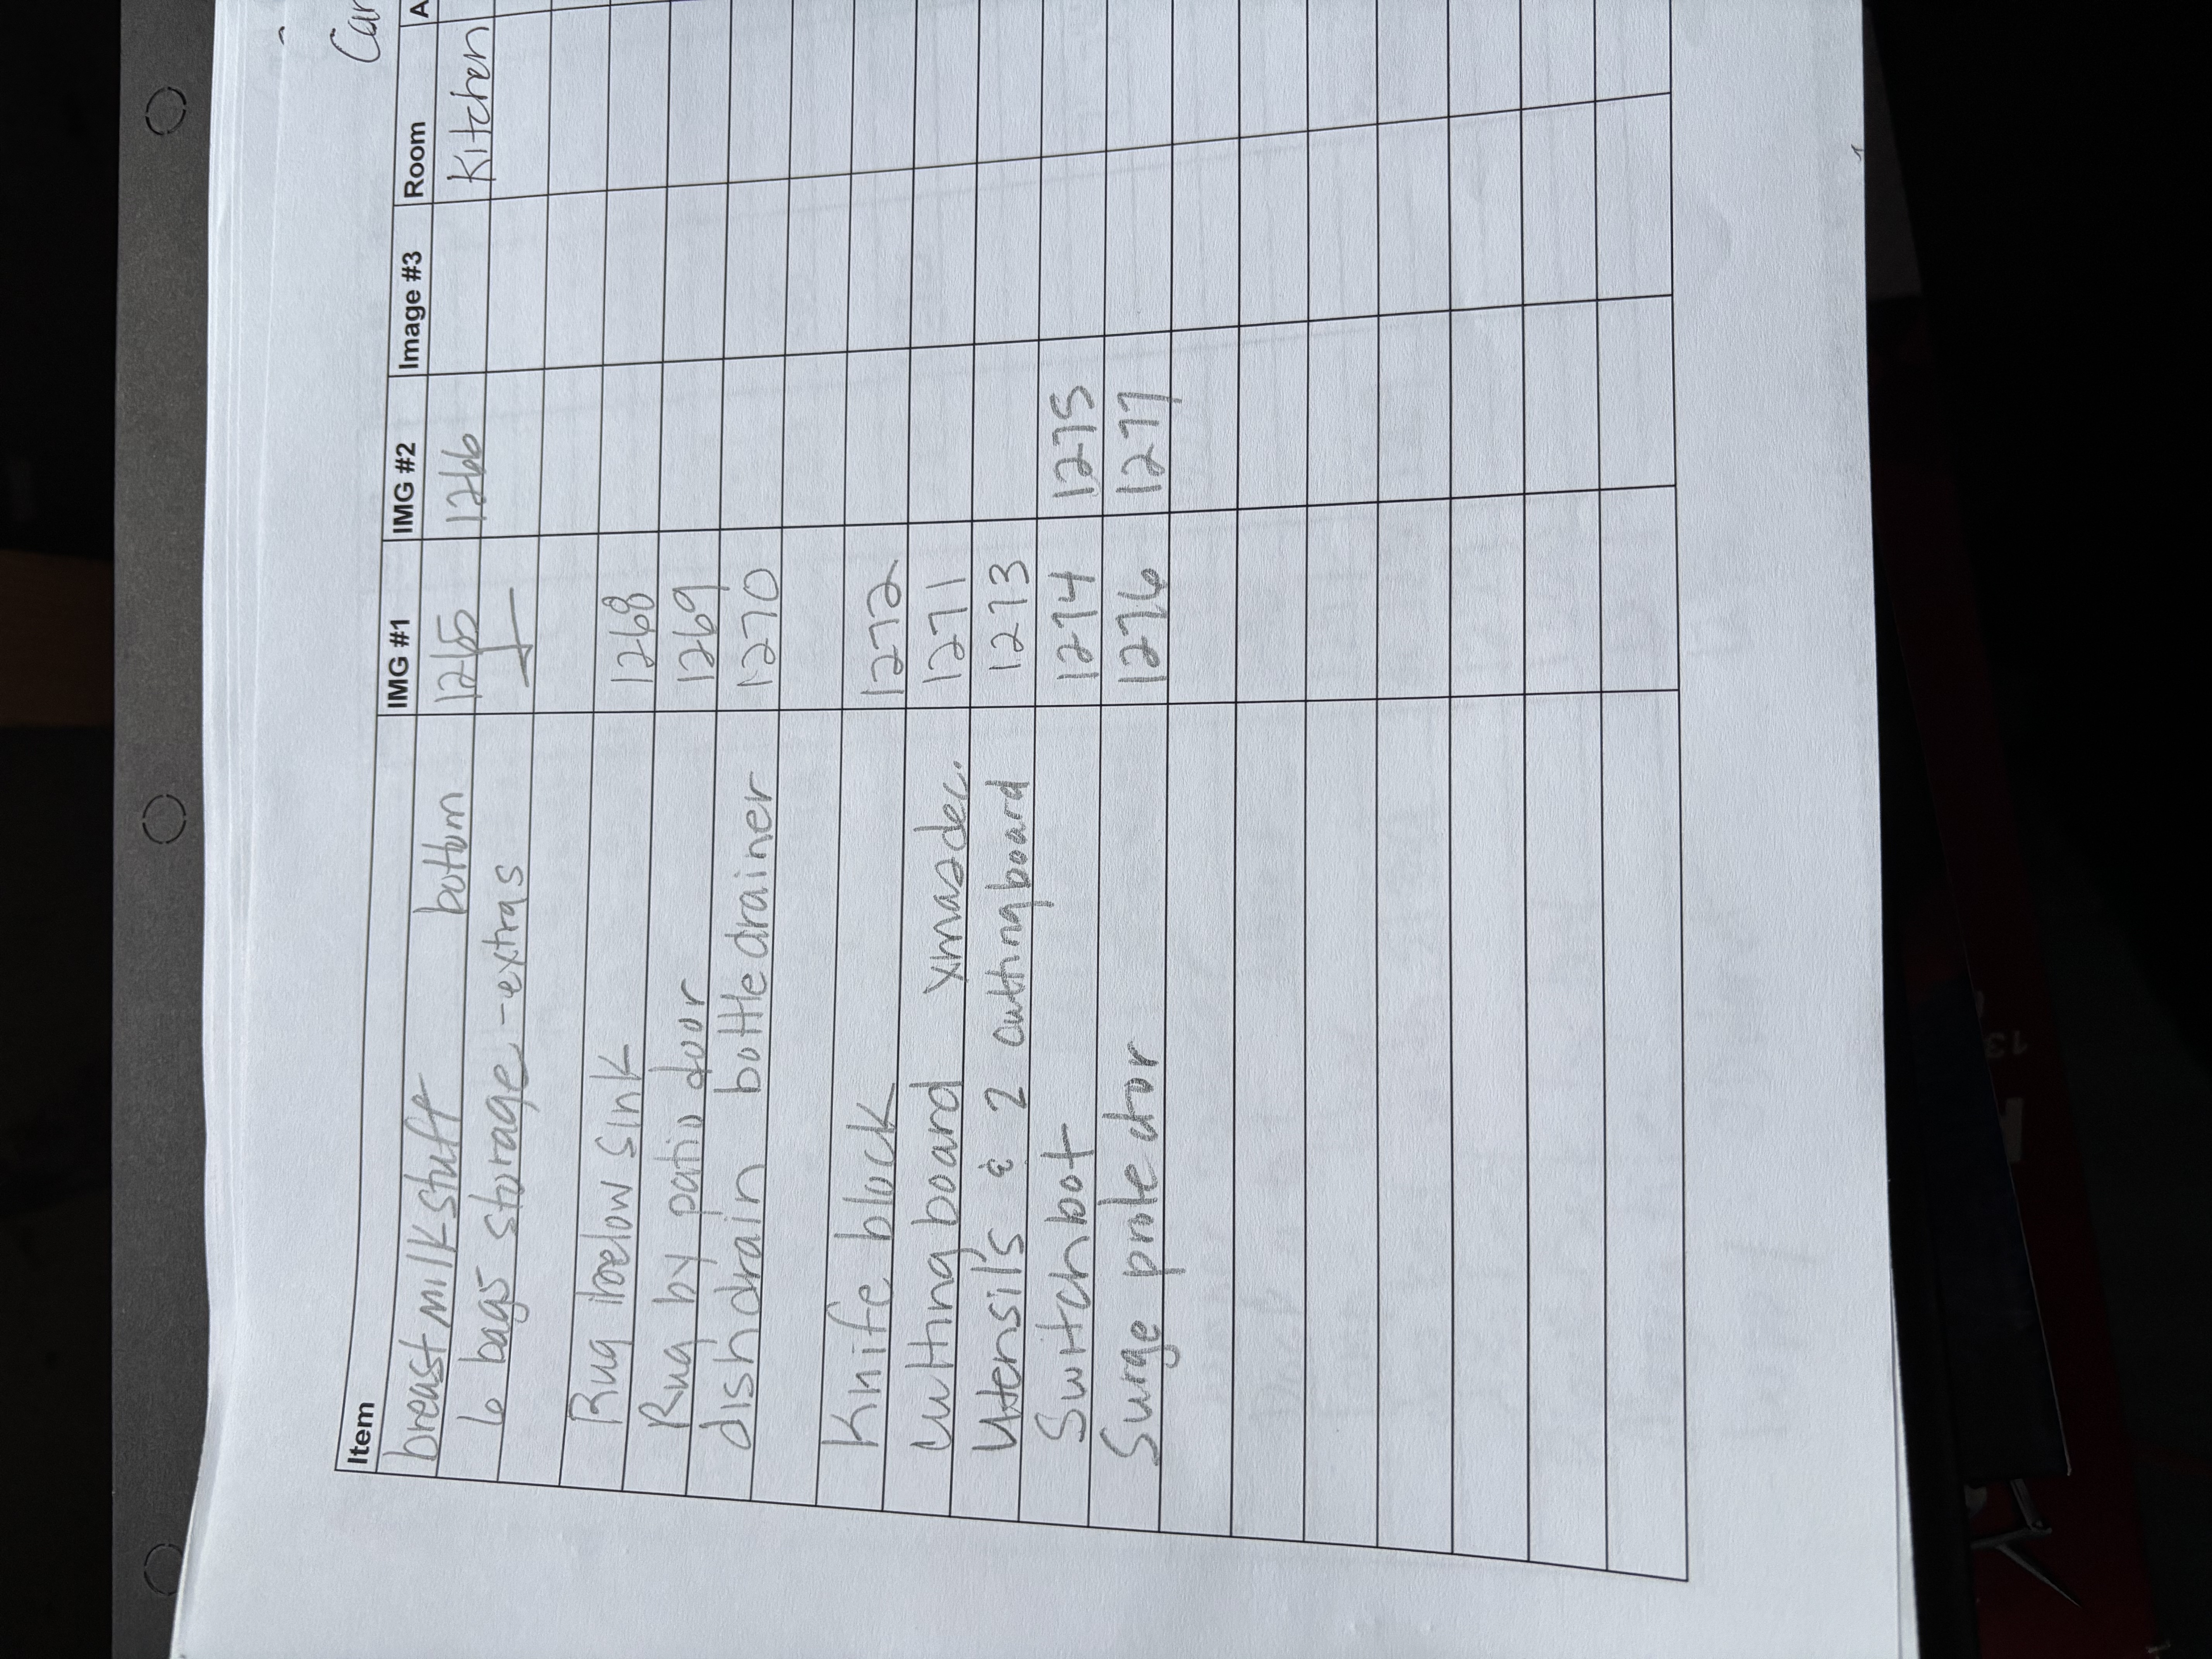 Car
Item IMG #1 IMG #2 Image #3 Room A
breastmilk stuff bottom 1265 1266 Kitchen
6 bags storage - extras
Rug below sink 1268
Rug by patio door 1269
dish drain bottle drainer 1270
Knife block 1272
Cutting board xmas dec. 1271
Utensil's & 2 cutting board 1273
Switchbot 1274 1275
Surge protector 1276 1277
13